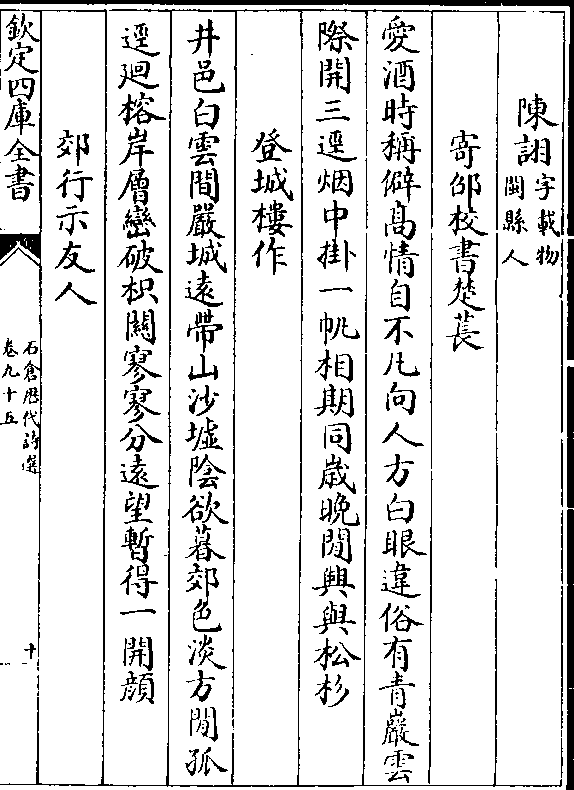 陳詡字載物
閩縣人
寄邵校書楚萇
愛酒時稱僻高情自不凡向人方白眼違俗有青巖雲
際開三逕烟中掛一帆相期同歲晚閒興與松杉
登城樓作
井邑白雲間嚴城遠帶山沙墟陰欲暮郊色淡方閒孤
逕廻榕岸層巒破枳關寥寥分遠望暫得一開顔
郊行示友人
欽定四庫全書
石倉歴代詩選
卷九十五
十